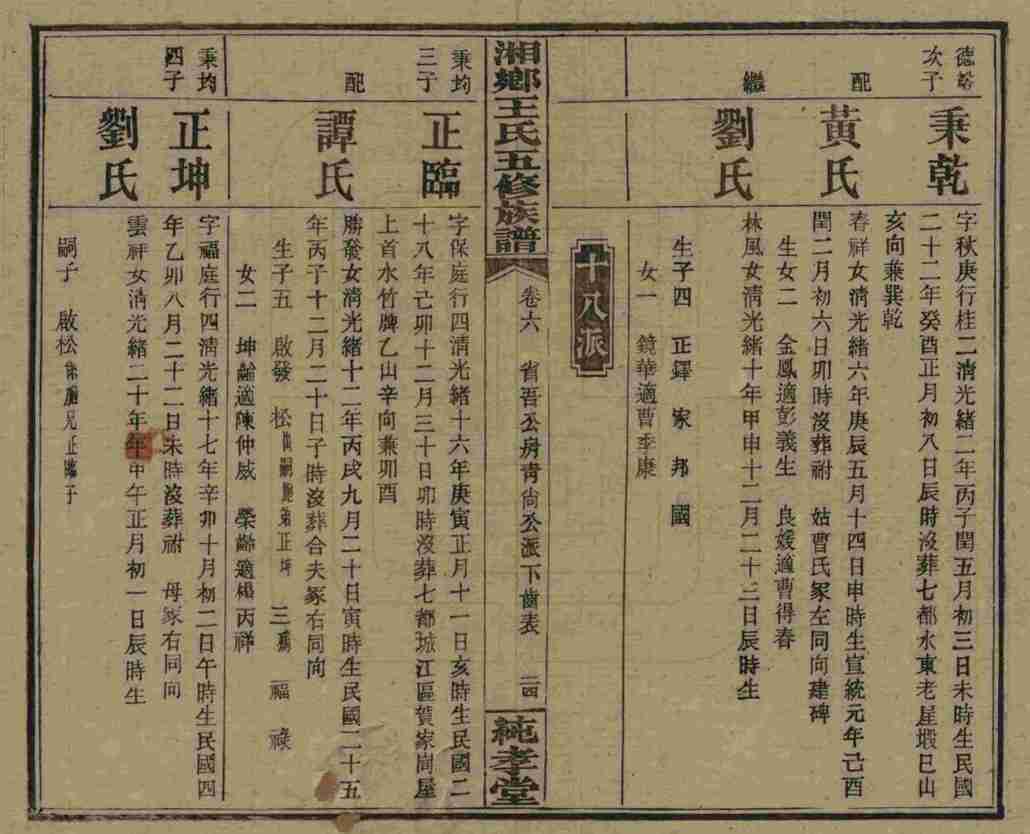 德
次子
秉乾
字秋庚行桂二淸光緒二年丙子閏五月初三日未時生民國
二十二年癸酉正月初八日辰時沒葬七都水東老屋塅巳山
亥向兼巽乾
配
黃氏
春祥女淸光緒六年庚辰五月十四日申時生宣統元年己酉
閏二月初六日卯時沒葬祔 姑曹氏冢左同向建碑
生女二 金鳳適彭義生 良媛適曹得春
繼
劉氏
林風女淸光緒十年甲申十二月二十三日辰時生
生子四 正鐸 家 邦 國
女一 鏡華適曹季康
十八派
湘鄉王氏五修族譜
卷六 省吾公房靑尙公派下齒表 二四
純孝堂
秉均
三子
正臨
字保庭行四淸光緒十六年庚寅正月十一日亥時生民國二
十八年己卯十二月三十日卯時沒葬七都城江區賀家崗屋
上首水竹牌乙山辛向兼卯酉
配
譚氏
勝發女淸光緒十二年丙戌九月二十日寅時生民國二十五
年丙子十二月二十日子時沒葬合夫冢右同向
生子五 啟發 松出嗣胞弟正坤 三 福 祿
女二 坤齡適陳仲威 榮齡適楊丙祥
秉均
四子
正坤
字福庭行四淸光緒十七年辛卯十月初二日午時生民國四
年乙卯八月二十二日未時沒葬祔 母冢右同向
劉氏
雲祥女淸光緒二十年年甲午正月初一日辰時生
嗣子 啟松係胞兄正臨子